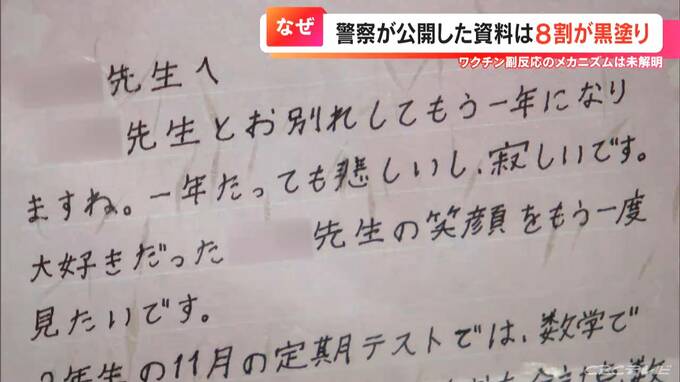 なぜ
警察が公開した資料は8割が黒塗り
ワクチン副反応のメカニズムは未解明
先生へ
先生とお別れしてもう一年になり
ますね。一年たっても悲しいし、寂しいです。
大好きだった 先生の笑顔をもう一度
見たいです。
年生の11月の定期テストでは、数学で
CBCテレビ